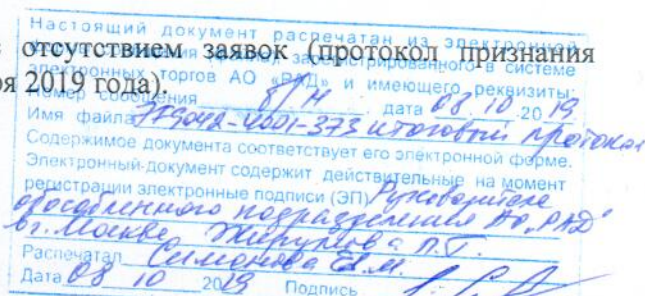 отсутствием заявок (протокол признания
я 2019 года).
Настоящий документ распечатан из электронной
зарегистрированного в системе
электронных торгов АО «РАД» и имеющего реквизиты:
Номер сообщения б/н дата 08 10 20 19
Имя файла 779042-4001-373 итоговый протокол
Содержимое документа соответствует его электронной форме.
Электронный документ содержит действительные на момент
регистрации электронные подписи (ЭП) Руководителя
обособленного подразделения АО „РАД"
в г. Москве Жирупова П.Г.
Распечатал Симонова Е.М.
Дата 08 10 2019 Подпись